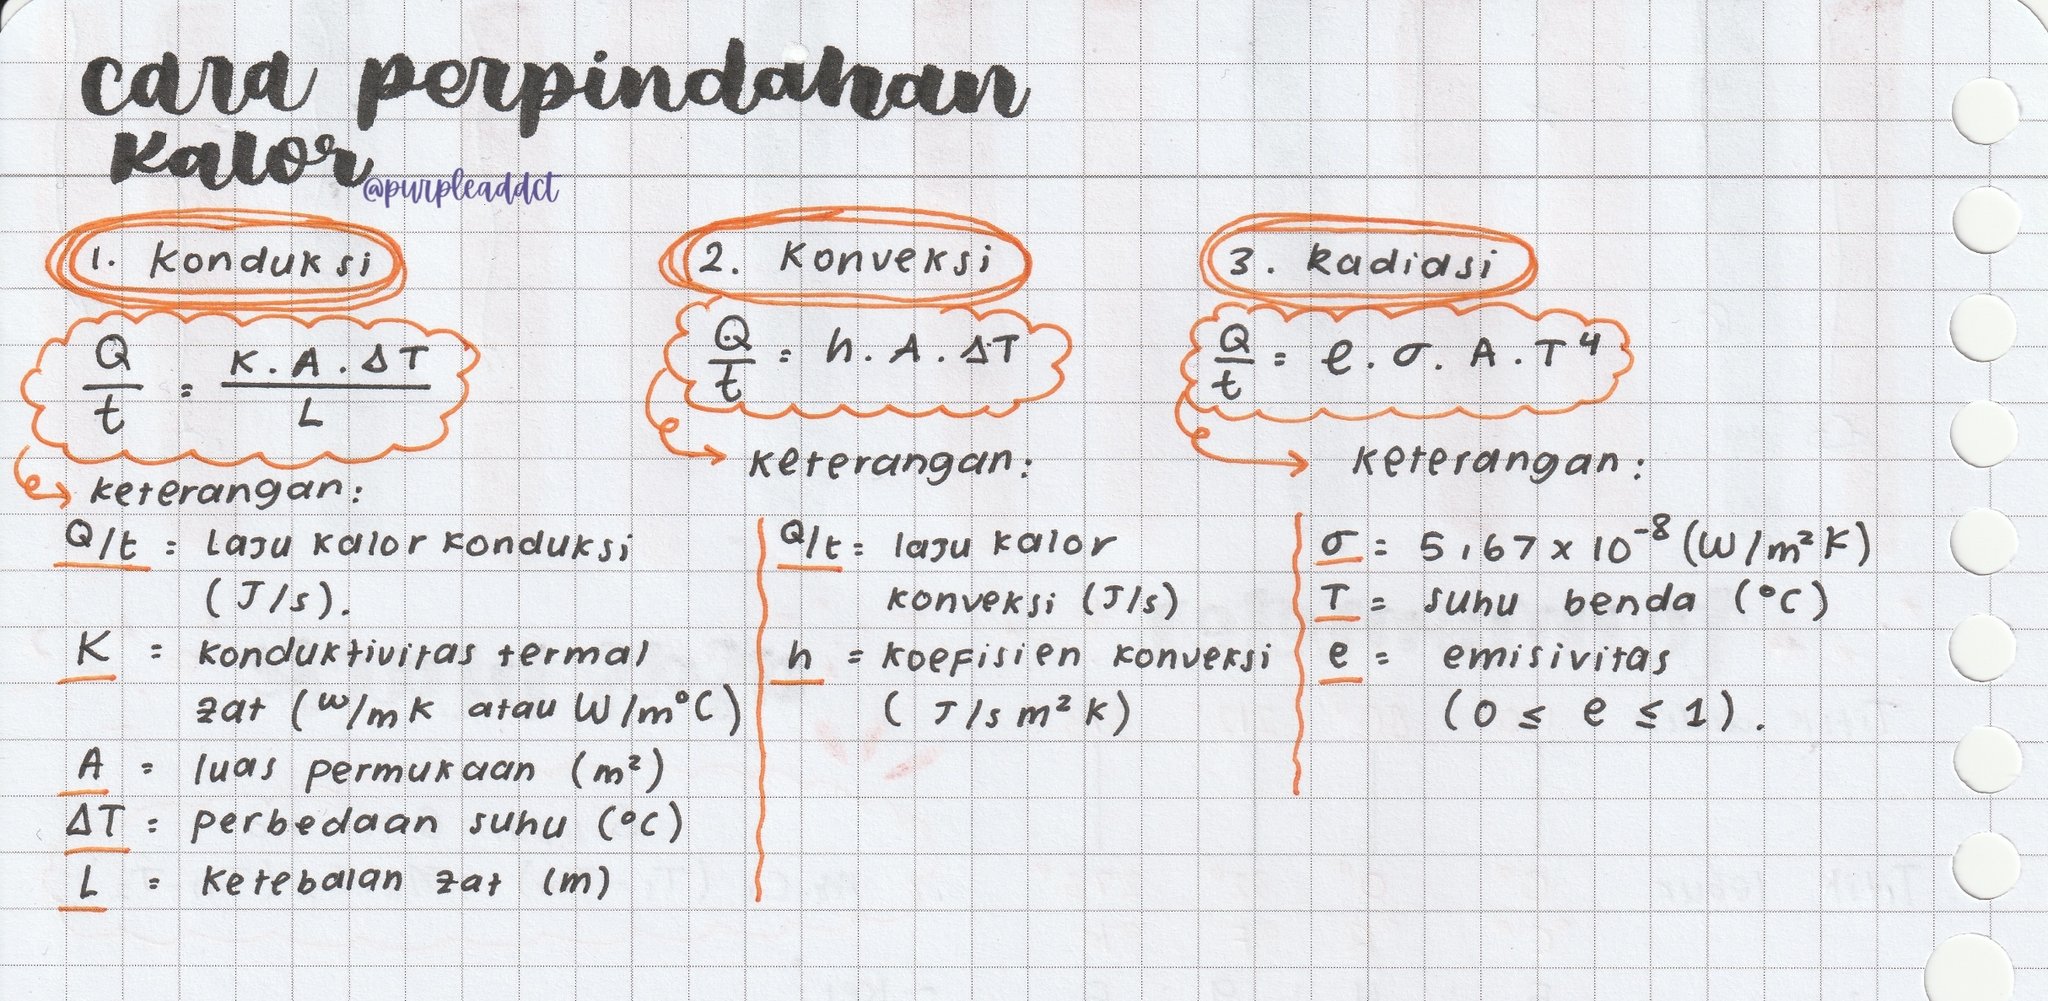 cara perpindahan
kalor
@purpleaddct
1. Konduksi
Q/t = K . A . ΔT / L
keterangan:
Q/t = Laju kalor konduksi
(J/s).
K = konduktivitas termal
zat (W/mK atau W/m°C)
A = luas permukaan (m²)
ΔT = perbedaan suhu (°C)
L = ketebalan zat (m)
2. Konveksi
Q/t = h . A . ΔT
keterangan:
Q/t = laju kalor
konveksi (J/s)
h = koefisien konveksi
(J/s m² K)
3. Radiasi
Q/t = e . σ . A . T⁴
keterangan:
σ = 5,67 x 10⁻⁸ (W/m² K)
T = suhu benda (°C)
e = emisivitas
(0 ≤ e ≤ 1).